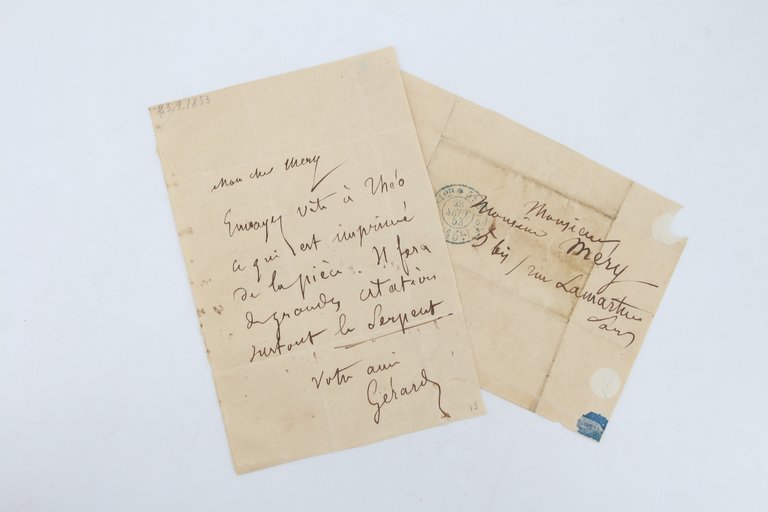 23.9.1853
Mon cher Méry
Envoyez vite à Théo
ce qui est imprimé
de la pièce. Il fera
de grandes citations
surtout le Serpent
Votre ami
Gérard
Monsieur
Monsieur Méry
bis rue Lamartine
Paris